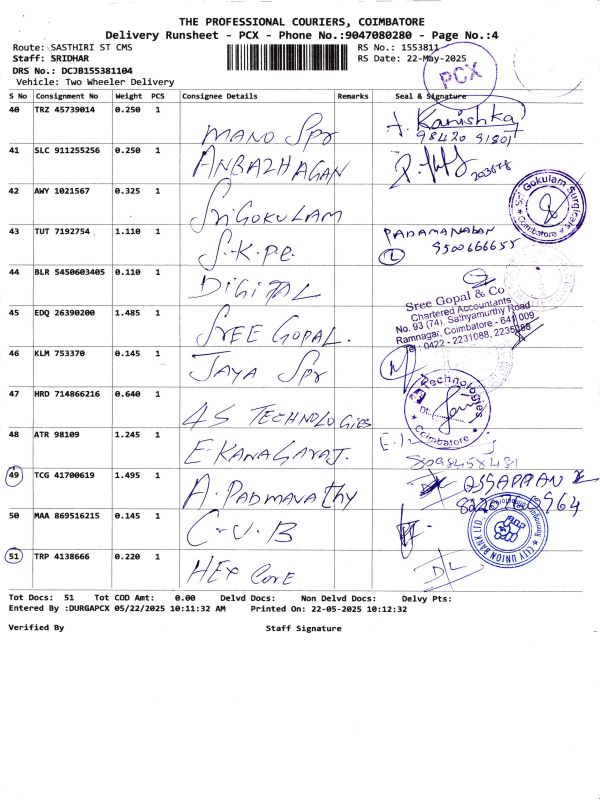 THE PROFESSIONAL COURIERS, COIMBATORE
Delivery Runsheet - PCX - Phone No.:9047080280 - Page No.:4
Route: SASTHIRI ST CMS
RS No.: 1553811
Staff: SRIDHAR
RS Date: 22-May-2025
DRS No.: DCJB155381104
Vehicle: Two Wheeler Delivery
PCX
S No Consignment No Weight PCS Consignee Details Remarks Seal & Signature
40 TRZ 45739014 0.250 1
MANO Spr
Kanishka
98420 91801
41 SLC 911255256 0.250 1
ANBAZHAGAN
42 AWY 1021567 0.325 1
Sri GOKULAM
Sri Gokulam Surgicals
Coimbatore
43 TUT 7192754 1.110 1
S.K.P.C.
PADAMANABAN
9500666655
44 BLR 5450603405 0.110 1
DIGITAL
45 EDQ 26390200 1.485 1
SREE GOPAL.
Sree Gopal & Co
Chartered Accountants
No. 93 (74), Sathyamurthy Road
Ramnagar, Coimbatore - 641 009
Tel : 0422 - 2231088, 2235088
46 KLM 753370 0.145 1
JAYA Spr
47 HRD 714866216 0.640 1
4S TECHNOLOGIES
Technologies
Coimbatore
48 ATR 98109 1.245 1
E. KANAGARAJ.
8098458481
49 TCG 41700619 1.495 1
A. PADMAVAthy
50 MAA 869516215 0.145 1
C-U-B
CITY UNION BANK LTD.
51 TRP 4138666 0.220 1
HEX CORE
DL
Tot Docs: 51 Tot COD Amt: 0.00 Delvd Docs: Non Delvd Docs: Delvy Pts:
Entered By :DURGAPCX 05/22/2025 10:11:32 AM Printed On: 22-05-2025 10:12:32
Verified By
Staff Signature